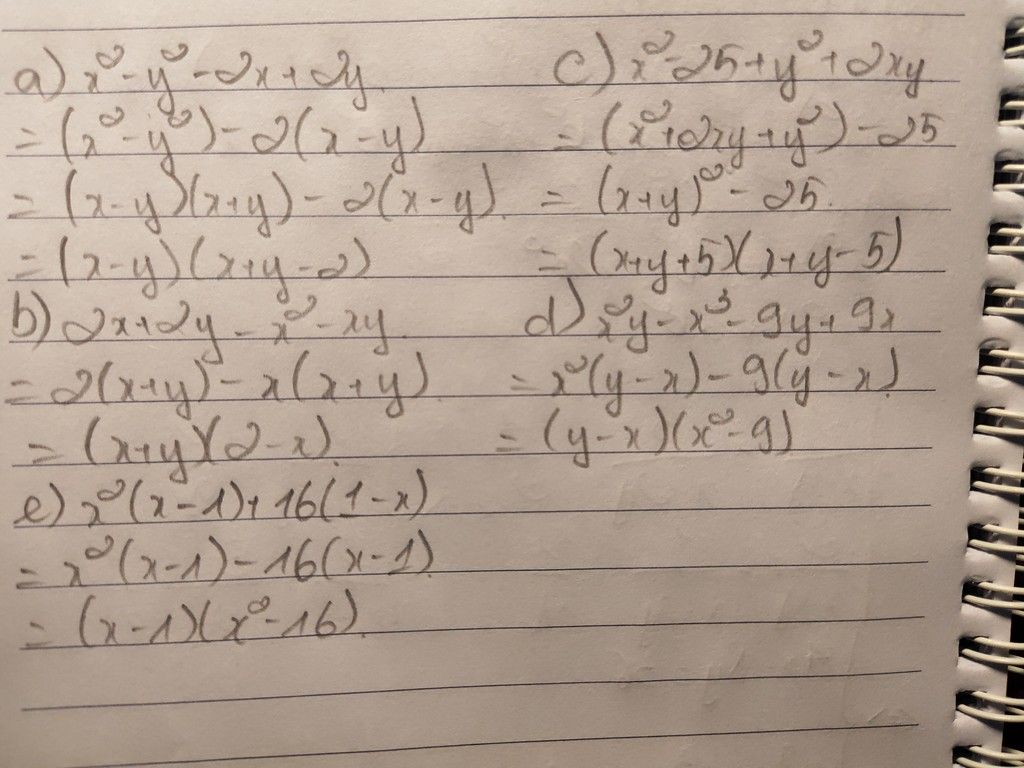 a) x² - y² - 2x + 2y.
= (x² - y²) - 2(x - y)
= (x - y)(x + y) - 2(x - y).
= (x - y)(x + y - 2)
b) 2x + 2y - x² - xy.
= 2(x + y) - x(x + y).
= (x + y)(2 - x).
e) x²(x - 1) + 16(1 - x)
= x²(x - 1) - 16(x - 1).
= (x - 1)(x² - 16).
c) x² - 25 + y² + 2xy
= (x² + 2xy + y²) - 25
= (x + y)² - 25.
= (x + y + 5)(x + y - 5)
d) x²y - x³ - 9y + 9x
= x²(y - x) - 9(y - x).
= (y - x)(x² - 9)